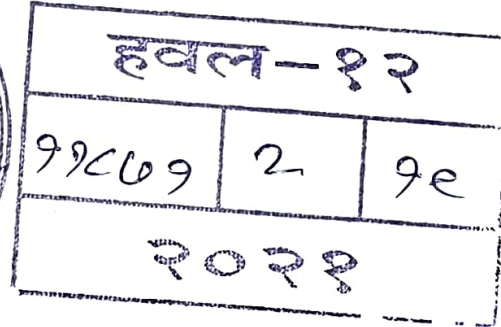 हवल-१२
११८७१ २ १९
२०२१